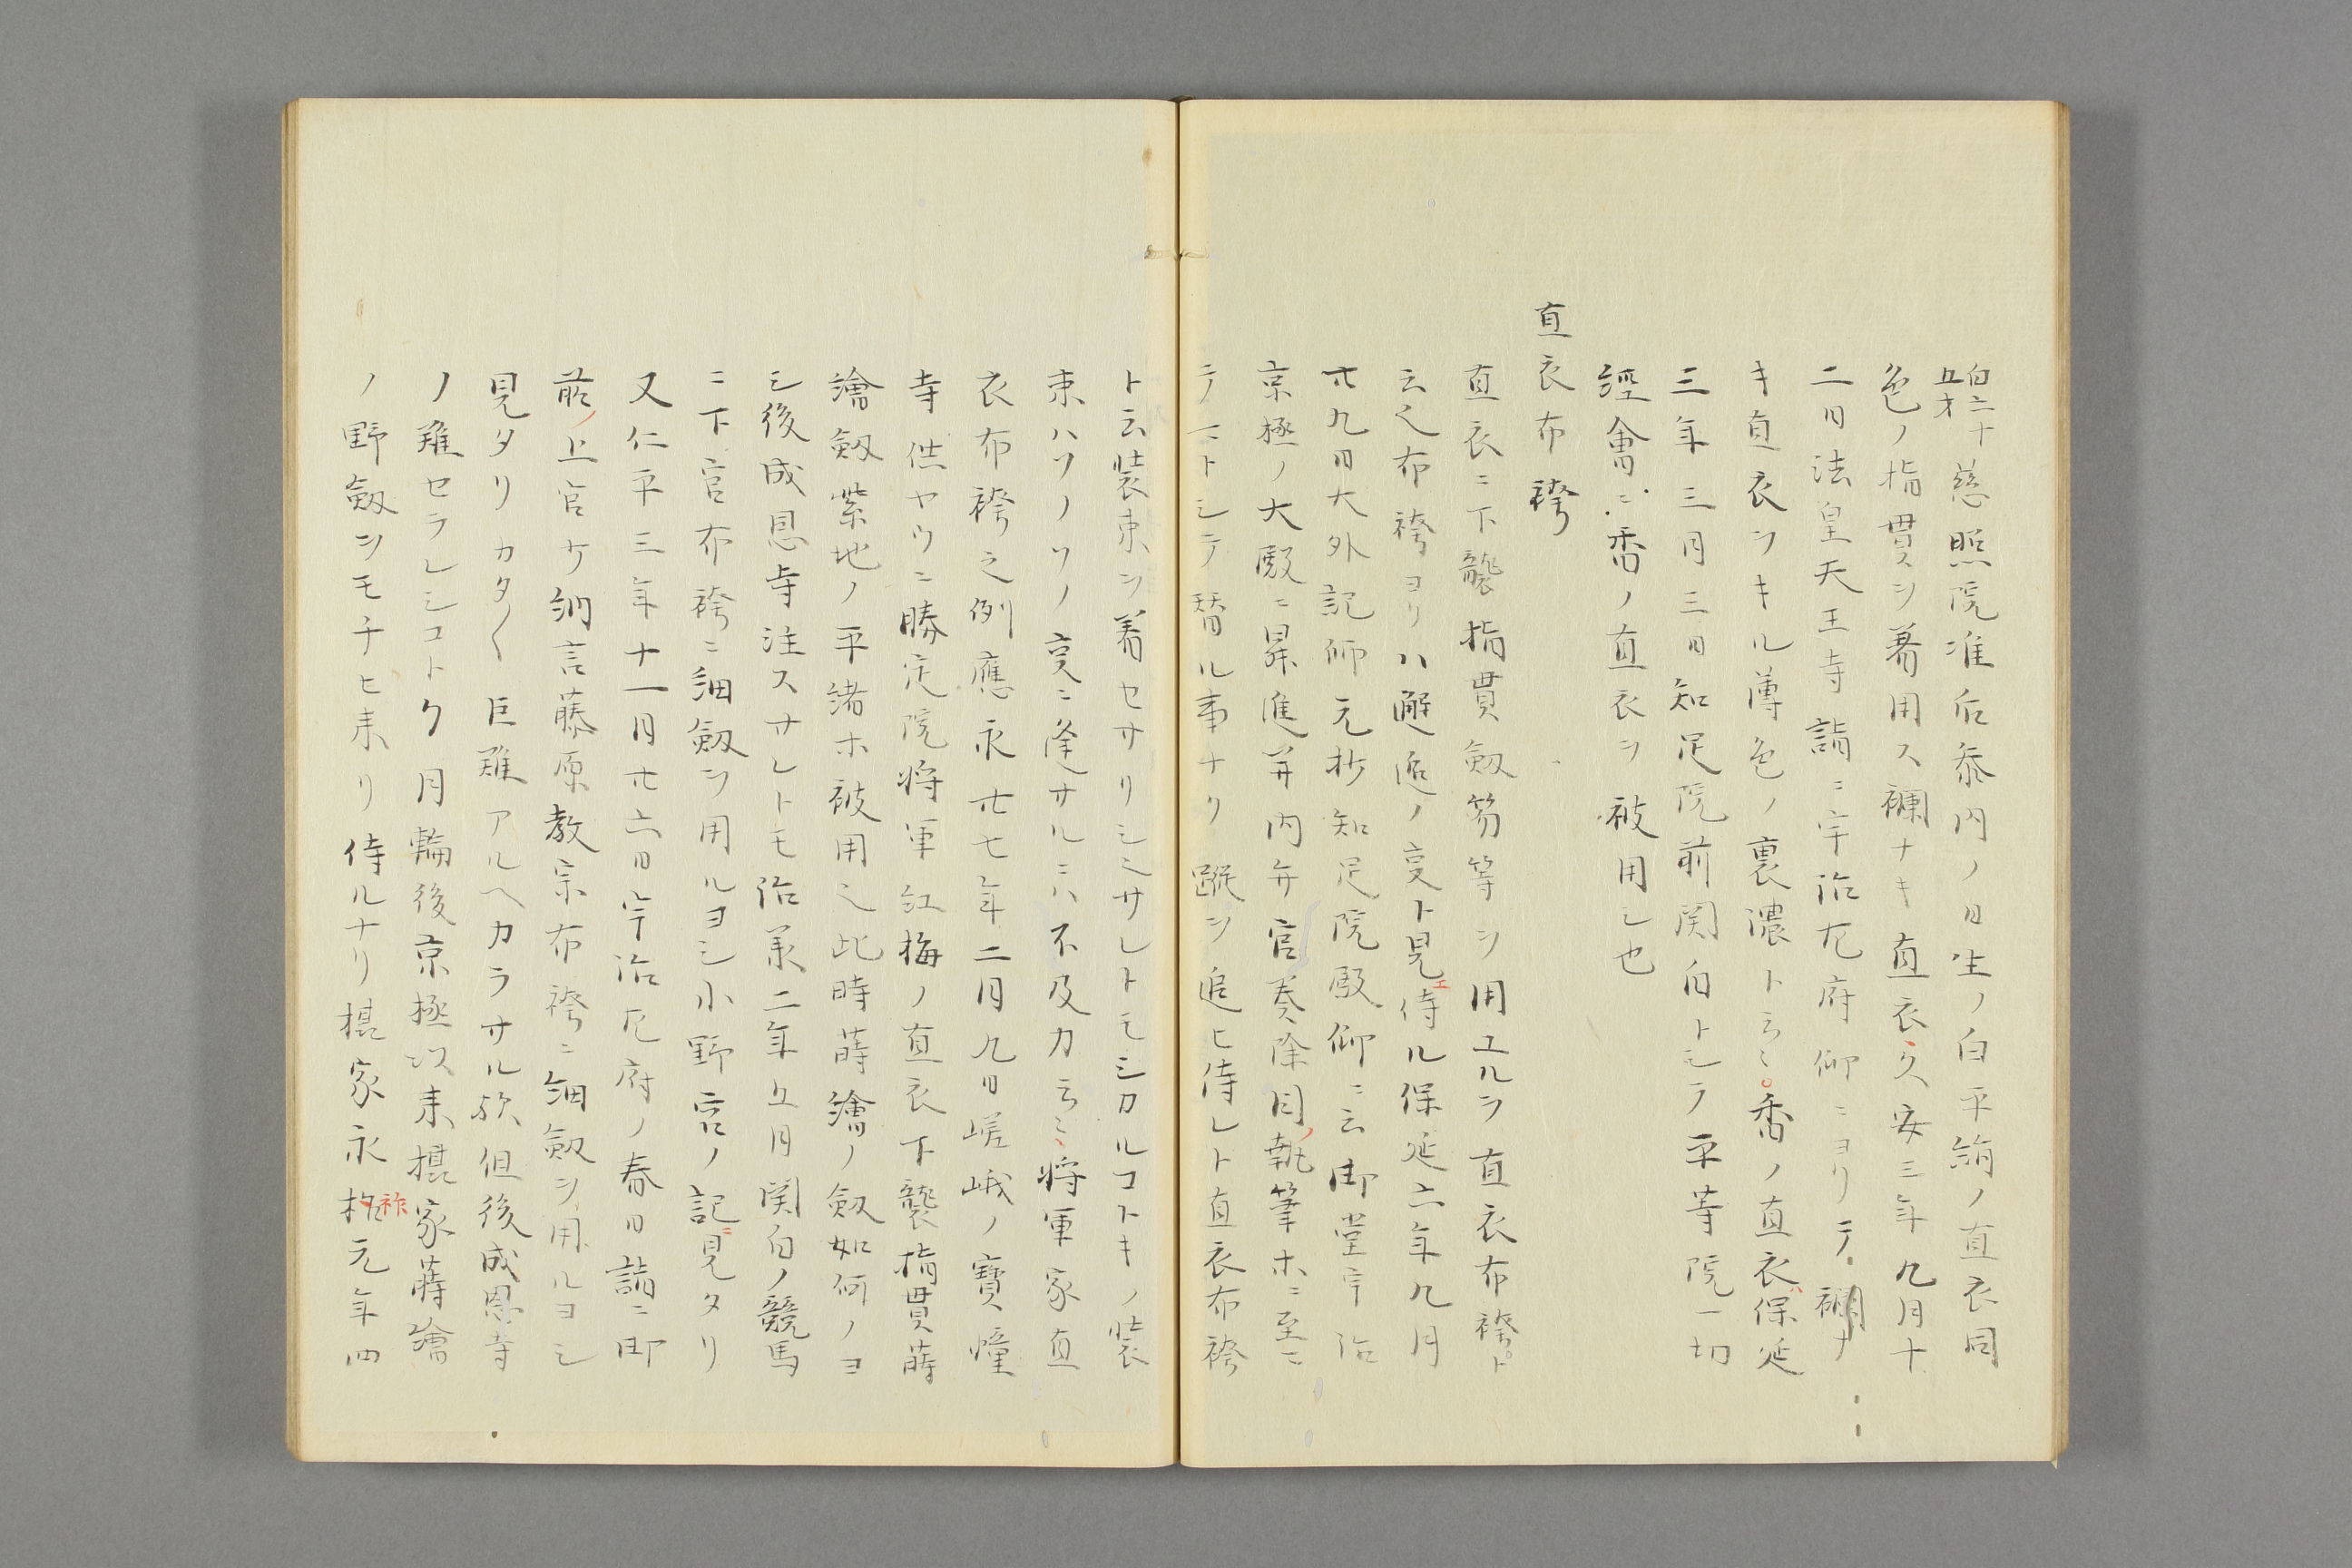 慈照院准后参内ノ日生ノ白平絹ノ直衣同
色ノ指貫ヲ着用ス襴ナキ直衣久安三年九月十
二日法皇天王寺詣ニ宇治左府仰ニヨリテ襴ナ
キ直衣ヲキル薄色ノ裏濃ト云々香ノ直衣ハ保延
三年三月三日知足院前関白トシテ平等院一切
經會ニ香ノ直衣ヲ被用シ也
直衣布袴
直衣ニ下襲指貫劔笏等ヲ用ユルヲ直衣布袴ト
云之布袴ヨリハ邂逅ノ叓ト見エ侍ル保延六年九月
廿九日大外記師元抄知足院殿仰ニ云御堂宇治
京極ノ大殿ニ昇進并内弁官奏除目ノ執筆ホニ至ニ
テコトシテ替ル事ナリ蹤ヲ追ヒ侍レト直衣布袴
ト云装束ヲ着セサリシミサレトモシカルコトキノ装
束ハソノソノ叓ニ逢サルニハ不及力云々将軍家直
衣布袴之例應永廿七年二月九日嵯峨ノ寶幢
寺供ヤウニ勝定院将軍紅梅ノ直衣下襲指貫蒔
繪劔紫地ノ平緒ホ被用之此時蒔繪ノ劔如何ノヨ
シ後成恩寺注スサレトモ治承二年五月関白ノ競馬
ニ下官布袴ニ細劔ヲ用ルヨシ小野宮ノ記ニ見タリ
又仁平三年十一月廿六日宇治左府ノ春日詣ニ御
前ノ上官ケ納言藤原教宗布袴ニ細劔ヲ用ルヨシ
見タリカタ〱巨難アルヘカラサル欤但後成恩寺
ノ難セラレシコトク月輪後京極以来摂家蒔繪
ノ野劔ヲモチヒ来リ侍ルナリ摂家永祚元年四